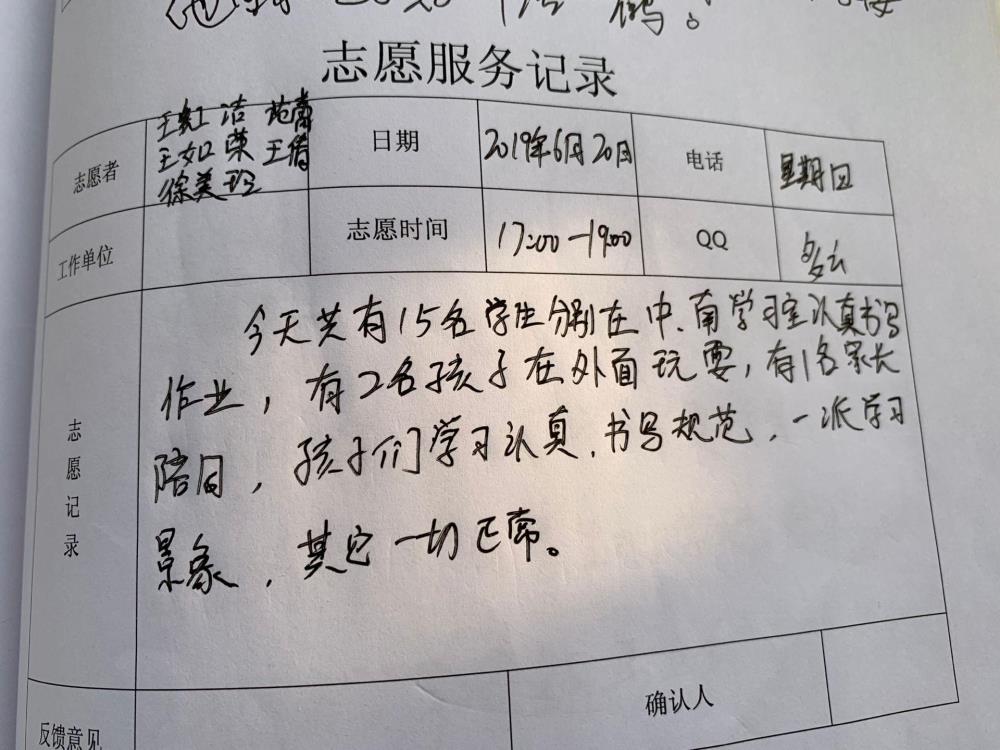 鹤。
志愿服务记录
志愿者 王虹 洁 范霄 日期 2019年6月20日 电话 星期日
王如荣 王倩
徐美玲
工作单位 志愿时间 17:00—19:00 QQ 多云
志愿记录
今天共有15名学生分别在中、南学习室认真书写
作业，有2名孩子在外面玩耍，有1名家长
陪同，孩子们学习认真、书写规范，一派学习
景象，其它一切正常。
反馈意见 确认人